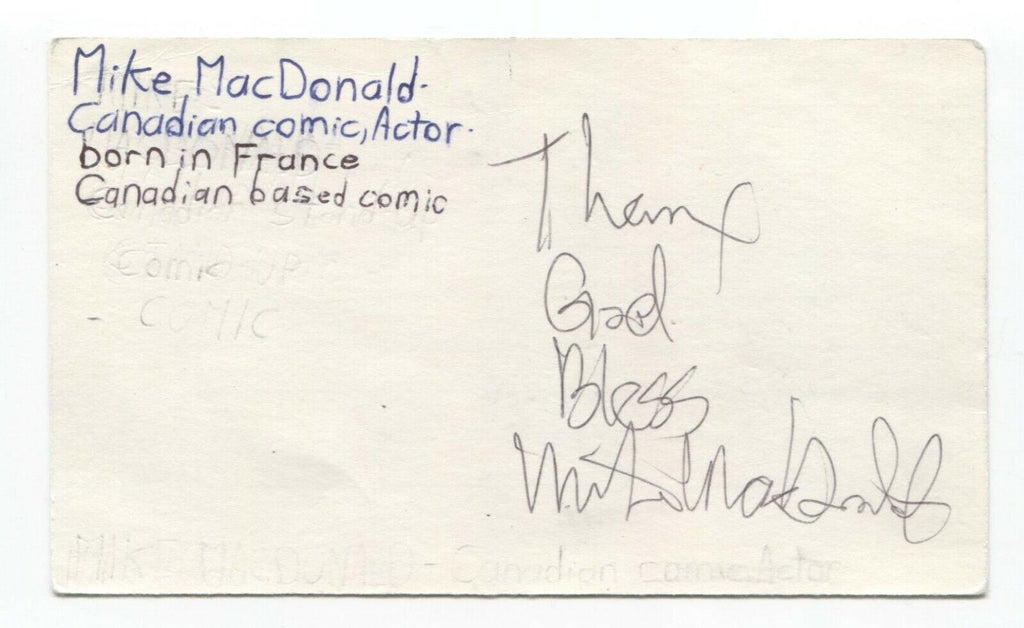 Mike MacDonald-
Canadian comic, Actor.
born in France
Canadian based comic
Comic UP
COMIC
God
Bless
Mike MacDonald
MIKE MACDONALD - Canadian comic, Actor